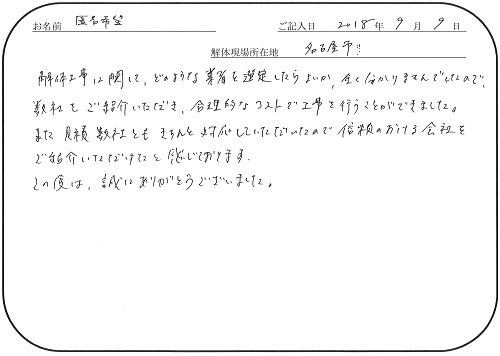 お名前 匿名希望 ご記入日 2018年 9月 9日
解体現場所在地 名古屋市
解体工事に関して、どのような業者を選定したらよいか、全く分かりませんでしたので、
数社をご紹介いただき、合理的なコストで工事を行うことができました。
また見積数社ともきちんと対応していただいたので信頼のおける会社を
ご紹介いただけたと感じております。
この度は、誠にありがとうございました。